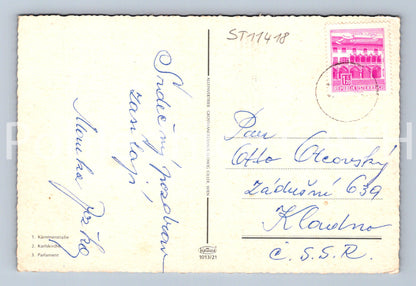 ST11418
Srdečný pozdrav
zasílají
Pan
Otto Ocovský
Zádušní 639
Kladno
Č. S. S. R.
1. Kärntnerstraße
2. Karlskirche
3. Parlament
1013/21
REPUBLIK ÖSTERREICH